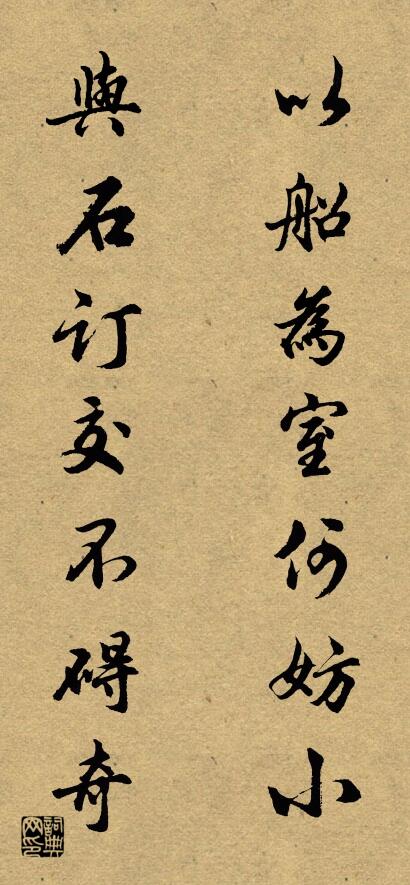 以船為室何妨小
與石訂交不碍奇
詞典网印